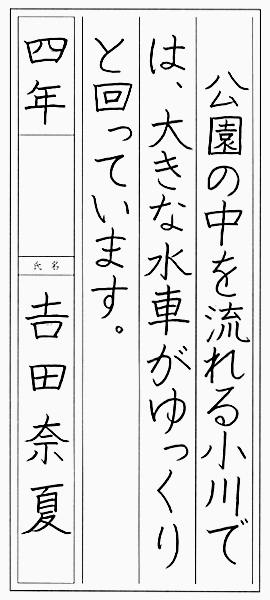 公園の中を流れる小川で
は、大きな水車がゆっくり
と回っています。
四年
氏名
吉田奈夏